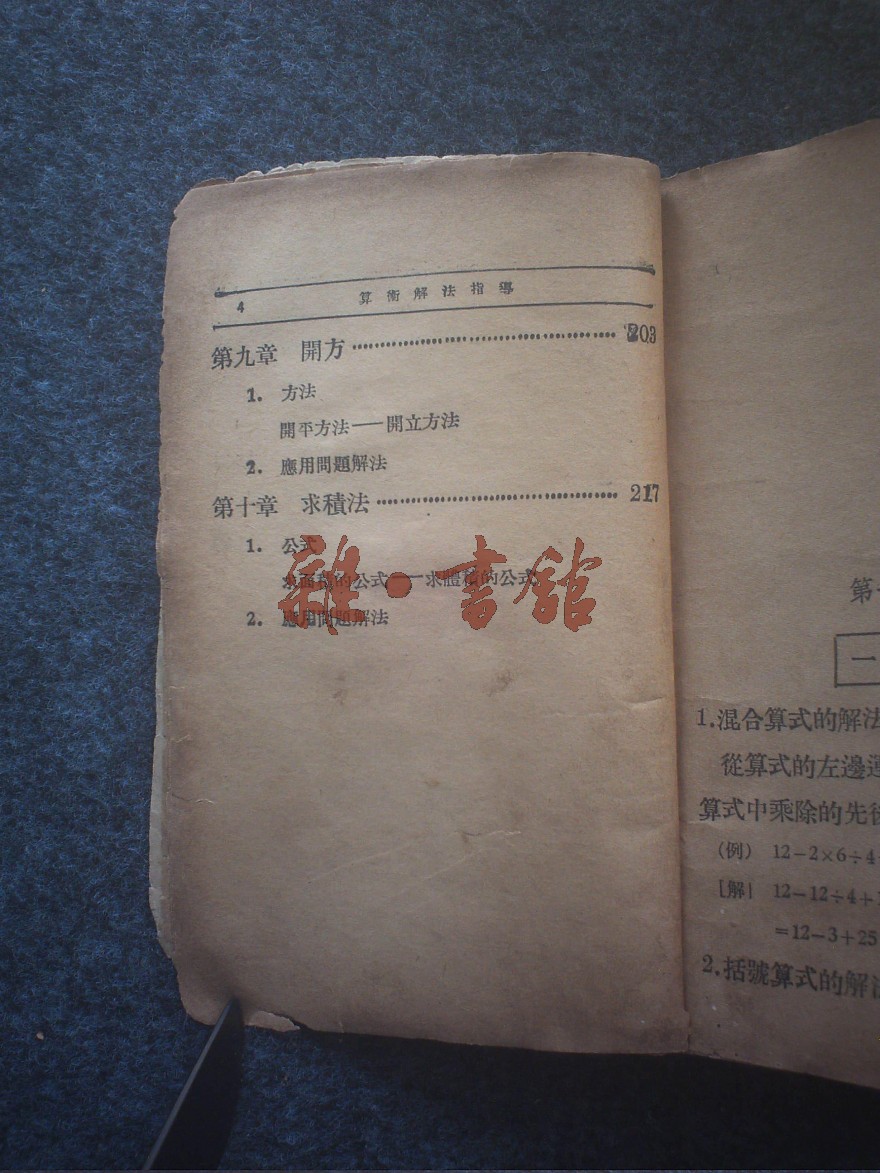 4 算術解法指導
第九章 開方 203
1. 方法
開平方法——開立方法
2. 應用問題解法
第十章 求積法 217
1. 公式
求面積的公式——求體積的公式
2. 應用問題解法
雜·書館
第
一
1.混合算式的解法
從算式的左邊
算式中乘除的先後
(例) 12-2×6÷4
[解] 12-12÷4+
=12-3+25
2.括號算式的解法